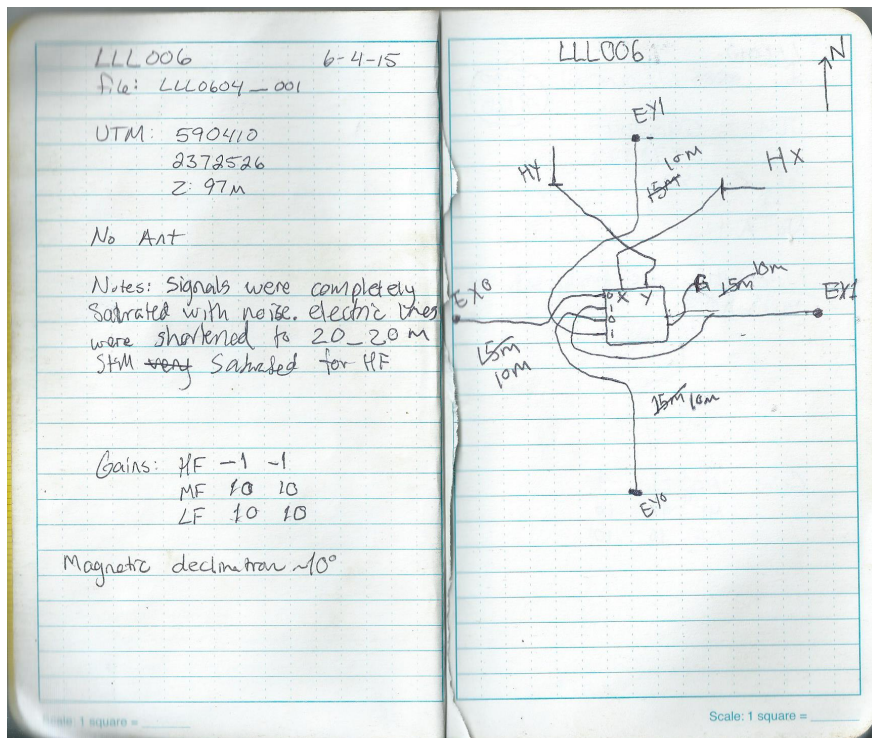 LLL006 6-4-15
file: LLL0604_001
UTM: 590410
2372526
Z: 97m
No Ant
Notes: Signals were completely
Satrated with noise. electric lines
were shortened to 20_20m
Still very Saturated for HF
Gains: HF -1 -1
MF 10 10
LF 10 10
Magnetic declination ~10°
Scale: 1 square =
LLL006
N
EY1
HY
10m
15m
HX
EX0
X Y
G
15m 10m
EX1
0
1
0
1
15m
10m
15m 10m
EY0
Scale: 1 square =